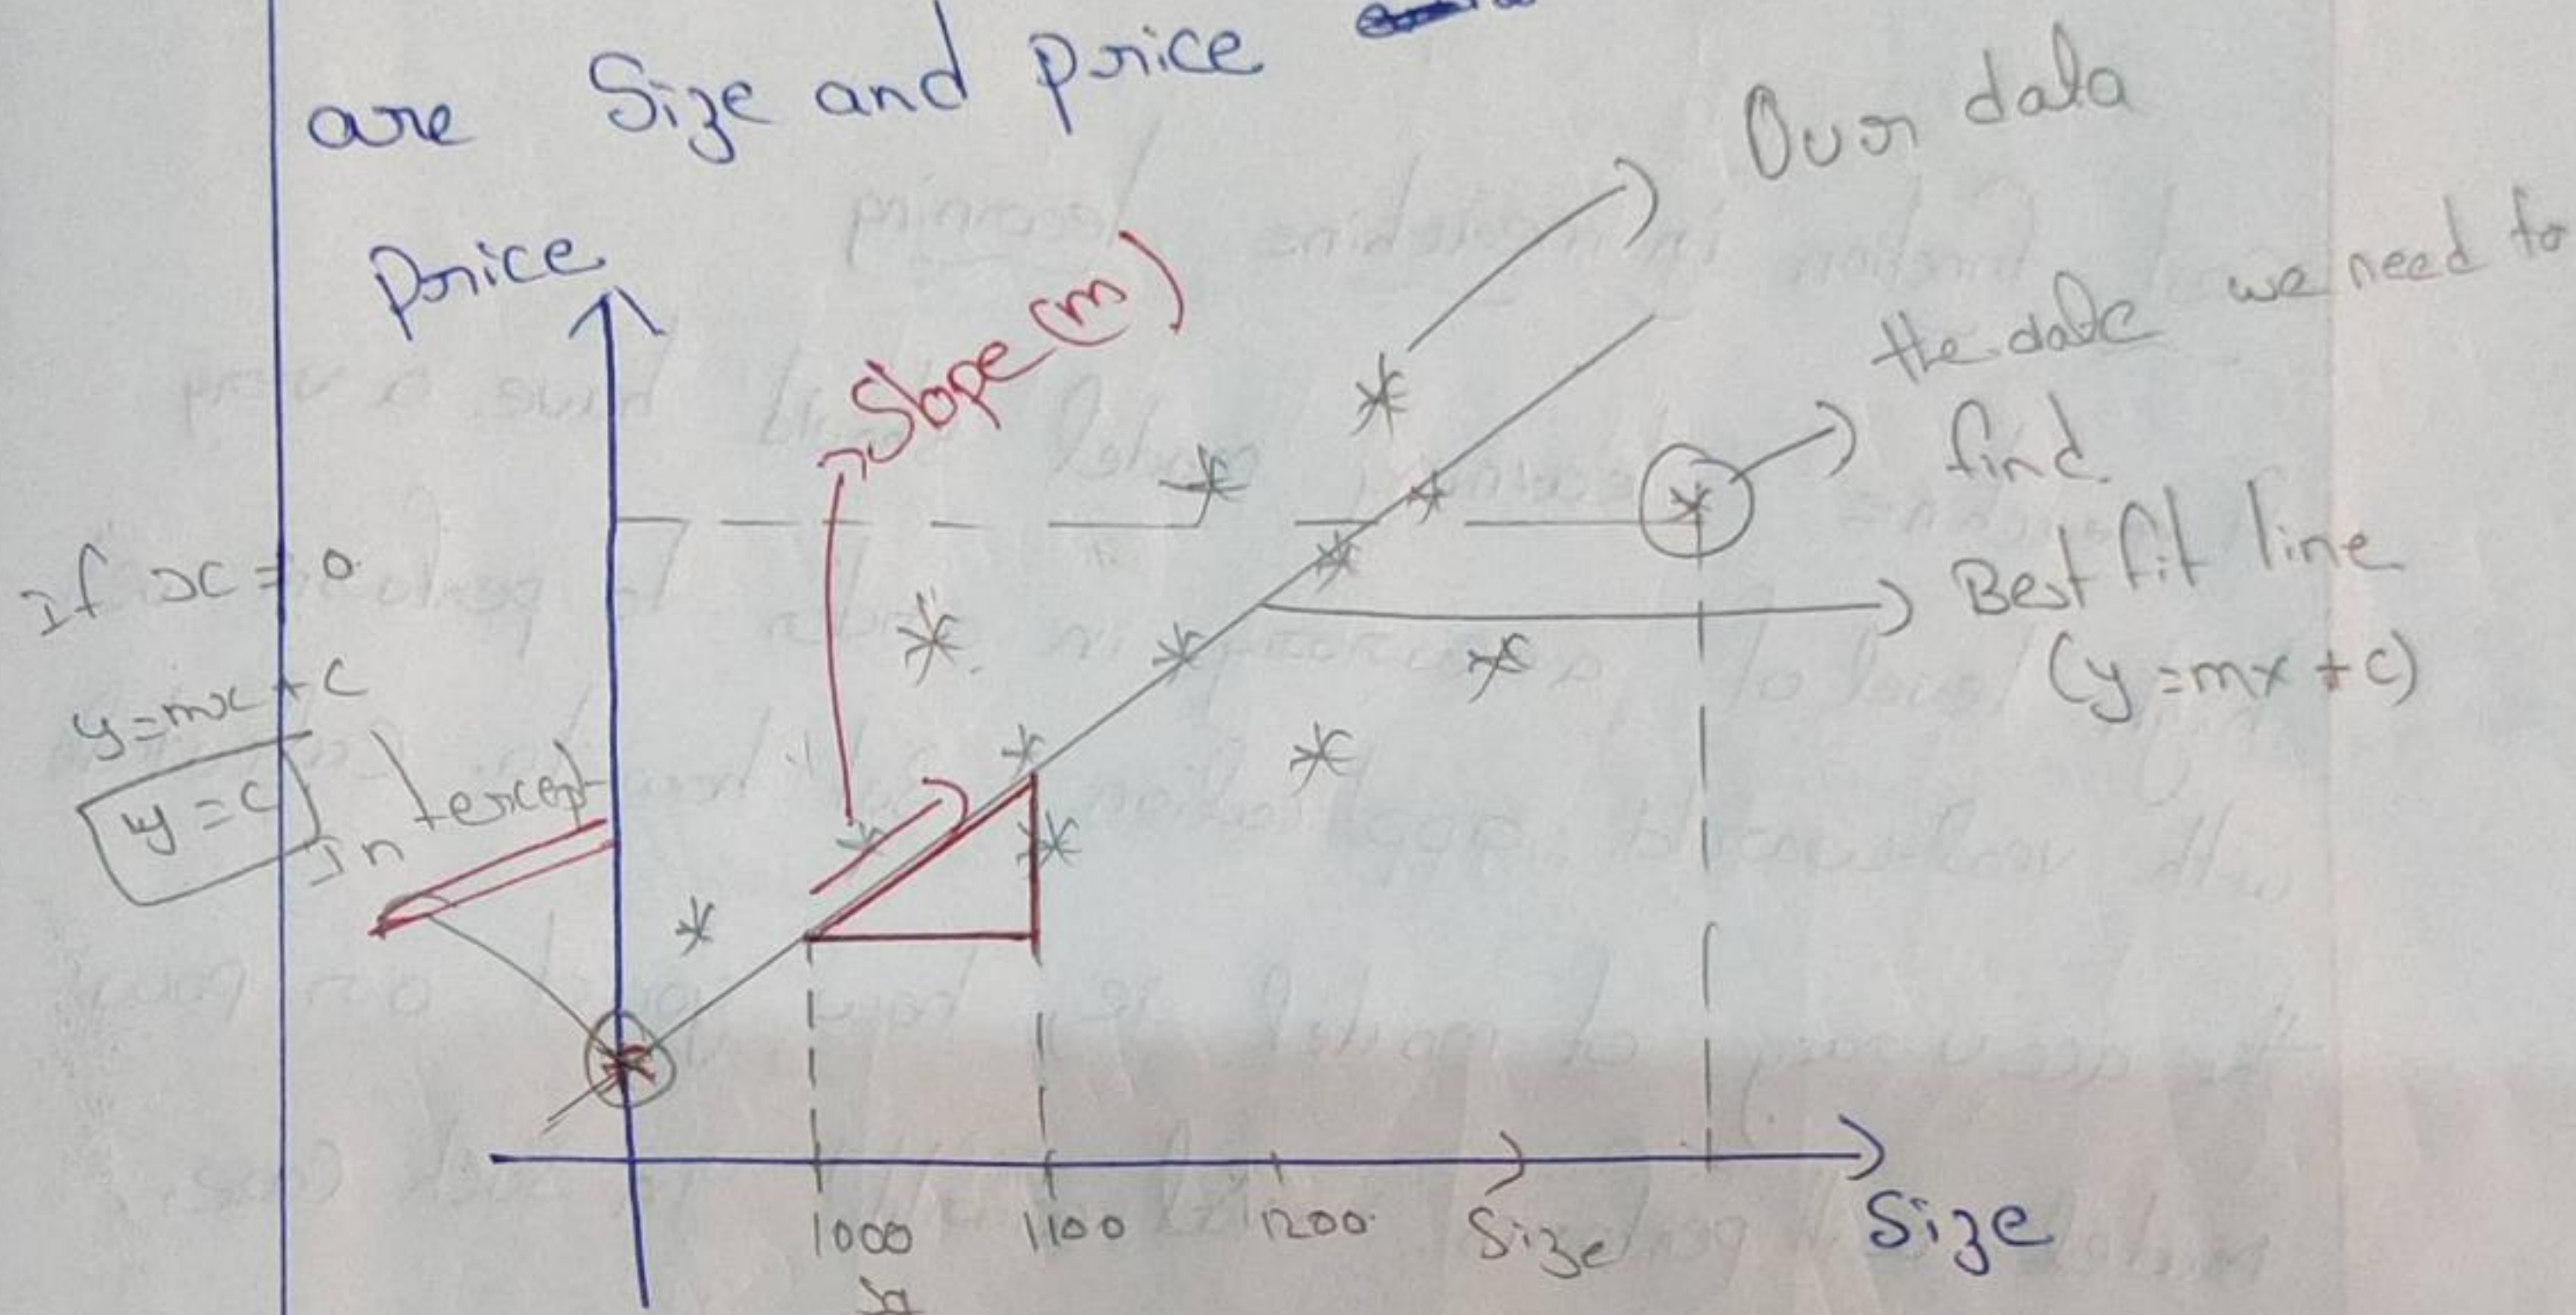 are Size and price
Our data
Price
Slope (m)
the data we need to
find.
Best fit line
(y = mx + c)
If x = 0
y = mx + c
y = c
Intercept
1000 1100 1200 Size Size